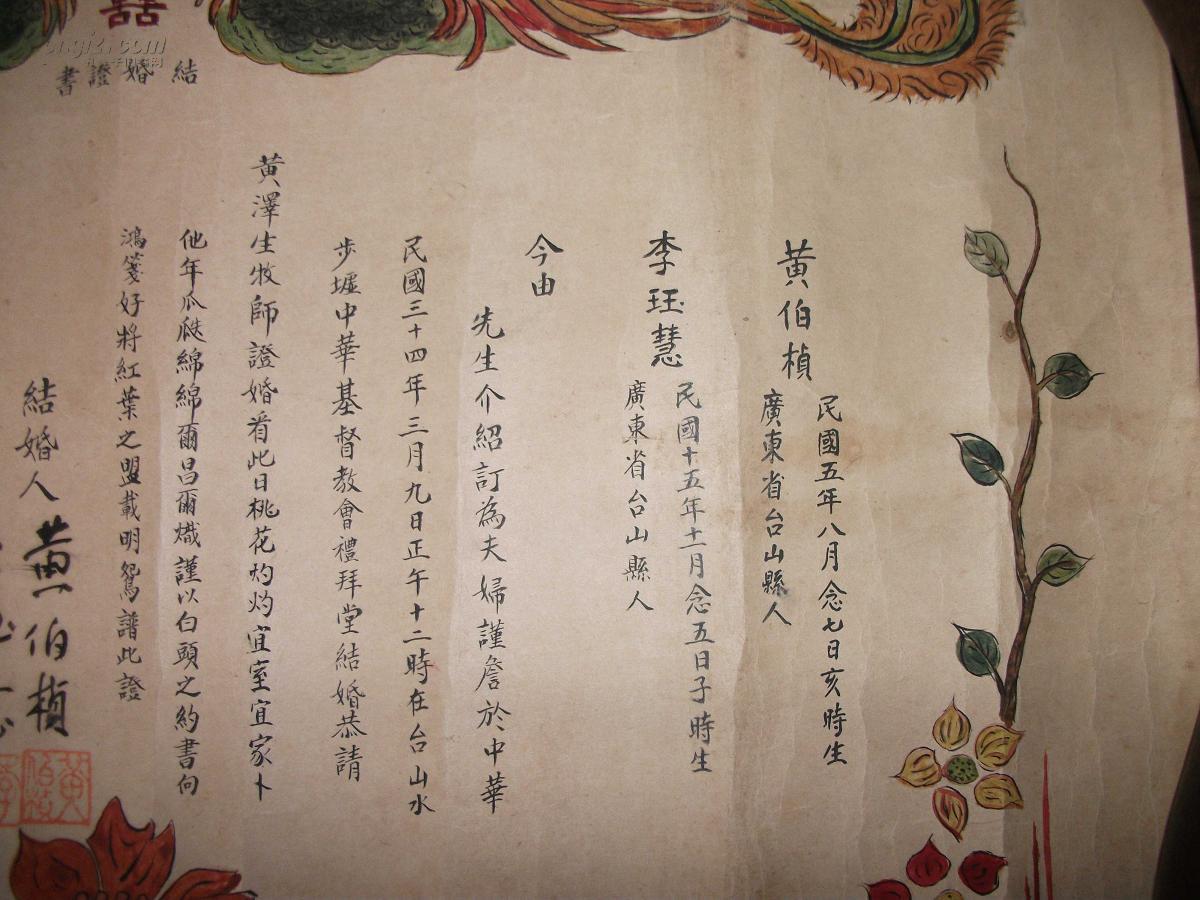 囍
結婚證書
黄伯楨
民國五年八月念七日亥時生
廣東省台山縣人
李珏慧
民國十五年十一月念五日子時生
廣東省台山縣人
今由
先生介紹訂為夫婦謹詹於中華
民國三十四年三月九日正午十二時在台山水
步墟中華基督教會禮拜堂結婚恭請
黄澤生牧師證婚看此日桃花灼灼宜室宜家卜
他年瓜瓞綿綿爾昌爾熾謹以白頭之約書向
鴻箋好將紅葉之盟載明鴛譜此證
結婚人 黄伯楨